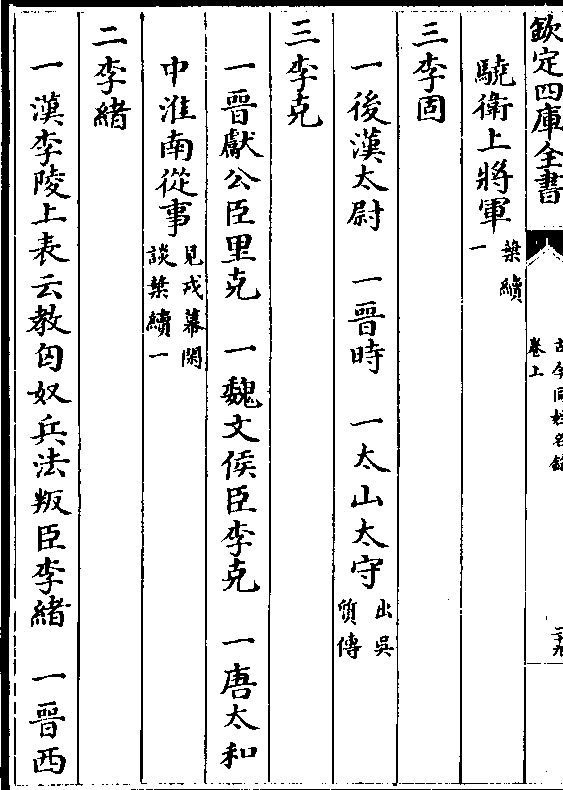 欽定四庫全書
古今同姓名錄
卷上
二十九
驍衛上將軍葉續一
三李固
一後漢太尉　一晉時　一太山太守出吳質傳
三李克
一晉獻公臣里克　一魏文侯臣李克　一唐太和
中淮南從事見戎幕閑談葉續一
二李緒
一漢李陵上表云教匈奴兵法叛臣李緒　一晉西